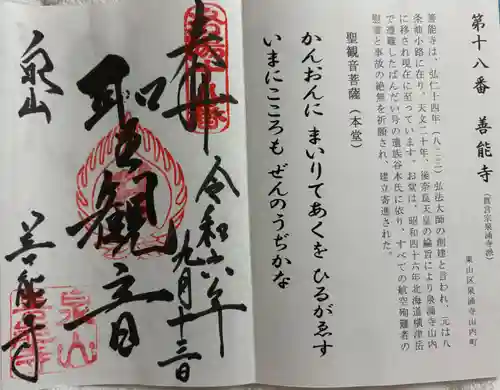 第十八番 善能寺 (真言宗泉涌寺派)
東山区泉涌寺山内町
善能寺は、弘仁十四年(八二三)弘法大師の創建と言われ、元は八
条油小路に在り、天文二十年、後奈良天皇の綸旨により泉涌寺山内
に移され現在に至っています。お堂は、昭和四十六年北海道横津岳
で遭難したばんだい号の遺族谷本氏に依り、すべての航空殉難者の
慰霊と事故の絶無を祈願され、建立寄進された。
聖観音菩薩(本堂)
かんおんに まいりてあくを ひるがゑす
いまにこころも ぜんのうぢかな
奉拝
令和六年
九月十三日
聖観音
泉山
善能寺